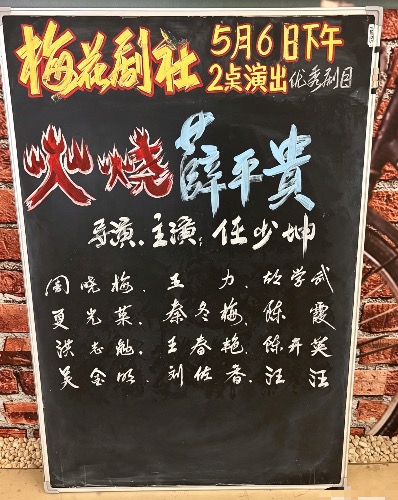 梅花剧社 5月6日下午
2点演出优秀剧目
火烧薛平貴
导演、主演：任少坤
周晓梅、王力、胡学武
夏光荣、秦冬梅、陈霞
洪志勉、王春艳、陈开英
吴金明、刘佐香、汪汪